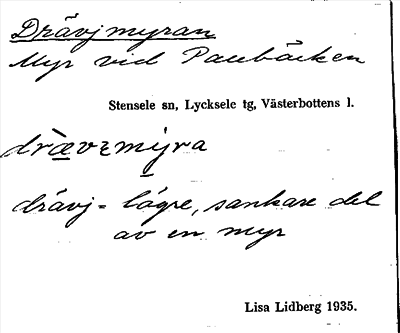 Drävjmyran
Myr vid Paubäcken
Stensele sn, Lycksele tg, Västerbottens l.
drævɛmyra
drävj = lägre, sankare del
av en myr
Lisa Lidberg 1935.